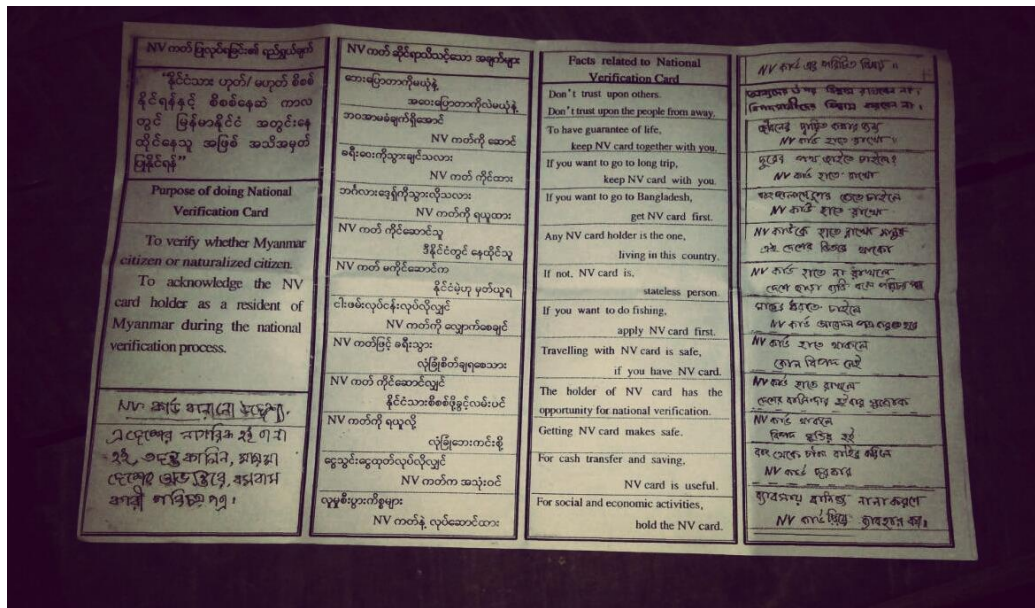 NV ကတ် ပြုလုပ်ရခြင်း၏ ရည်ရွယ်ချက်
"နိုင်ငံသား ဟုတ်/ မဟုတ် စိစစ်
နိုင်ရန်နှင့် စိစစ်နေဆဲ ကာလ
တွင် မြန်မာနိုင်ငံ အတွင်းနေ
ထိုင်နေသူ အဖြစ် အသိအမှတ်
ပြုနိုင်ရန်"
Purpose of doing National
Verification Card
To verify whether Myanmar
citizen or naturalized citizen.
To acknowledge the NV
card holder as a resident of
Myanmar during the national
verification process.
NV কার্ড বানানো উদ্দেশ্য
এ দেশের নাগরিক হই
NV ကတ် ဆိုင်ရာသိသင့်သော အချက်များ
ဘေးပြောတာကိုမယုံနဲ့
အဝေးပြောတာကိုလဲမယုံနဲ့
ဘဝအာမခံချက်ရှိအောင်
NV ကတ်ကို ဆောင်
ခရီးဝေးကိုသွားချင်သလား
NV ကတ် ကိုင်ထား
ဘင်္ဂလားဒေ့ရှ်ကိုသွားလိုသလား
NV ကတ်ကို ရယူထား
NV ကတ် ကိုင်ဆောင်သူ
ဒီနိုင်ငံတွင် နေထိုင်သူ
NV ကတ် မကိုင်ဆောင်က
နိုင်ငံမဲ့ဟု မှတ်ယူရ
ငါးဖမ်းလုပ်ငန်းလုပ်လိုလျှင်
NV ကတ်ကို လျှောက်စေချင်
NV ကတ်ဖြင့် ခရီးသွား
လုံခြုံစိတ်ချရစေသား
NV ကတ် ကိုင်ဆောင်လျှင်
နိုင်ငံသားစိစစ်ဖို့ခွင့်လမ်းပင်
NV ကတ်ကို ရယူလို့
လုံခြုံဘေးကင်းစို့
ငွေသွင်းငွေထုတ်လုပ်လိုလျှင်
NV ကတ်က အသုံးဝင်
လူမှုစီးပွားကိစ္စများ
NV ကတ်နဲ့ လုပ်ဆောင်ထား
Facts related to National
Verification Card
Don't trust upon others.
Don't trust upon the people from away.
To have guarantee of life,
keep NV card together with you.
If you want to go to long trip,
keep NV card with you.
If you want to go to Bangladesh,
get NV card first.
Any NV card holder is the one,
living in this country.
If not. NV card is,
stateless person.
If you want to do fishing,
apply NV card first.
Travelling with NV card is safe,
if you have NV card.
The holder of NV card has the
opportunity for national verification.
Getting NV card makes safe.
For cash transfer and saving,
NV card is useful.
For social and economic activities,
hold the NV card.
NV কার্ড এর পরিচিত বিষয়
NV কার্ড হাতে রাখো
দূরের পথে যাইতে চাইলে
NV কার্ড হাতে রাখো
NV কার্ড হাতে রাখো
NV কার্ডকে হাতে রাখো মানুষ
এই দেশের ভিতরে থাকো
NV কার্ড হাতে না রাখলে
মাছ ধরতে চাইলে
NV কার্ড হাতে থাকলে
কোন বিপদ নেই
NV কার্ড হাতে রাখলে
NV কার্ড থাকলে
NV কার্ড দরকার